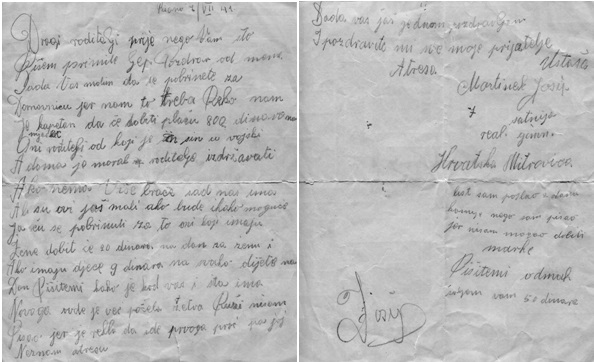 Dragi roditelji prije nego vam što
Pišem primite ljep Pozdrav od mene
Sada Vas molim da se pobrinete za
Domovnicu jer nam to treba Reko nam
je kapetan da će dobiti plaću 800 dinara
mjesec
Oni roditelji od koji je sin u vojski
A da ima
Ako nema Više braće kod nas ima
Ali su ovi još mali ako bude ikako moguće
Ja ću se pobrinuti za to oni koji imaju
Žene dobit će 20 dinara na dan za ženu i
Ako imaju djece 9 dinara na svako dijete na
Dan Pišitemi kako je kod vas i šta ima
Novoga ovde je već počela žetva
Pisao jer je rekla da ide prvoga
Neznam adresu
Sada vas još jednom pozdravljam
I pozdravite mi sve moje prijatelje
Atresa Ustaša
Martinek Josip
7 satnija
real. gimn.
Hrvatska Mitrovica
List sam poslao
nego sam pisao
jer nisam mogao dobiti
marke
Pišitemi odmah
šaljem vam 50 dinara
Josip